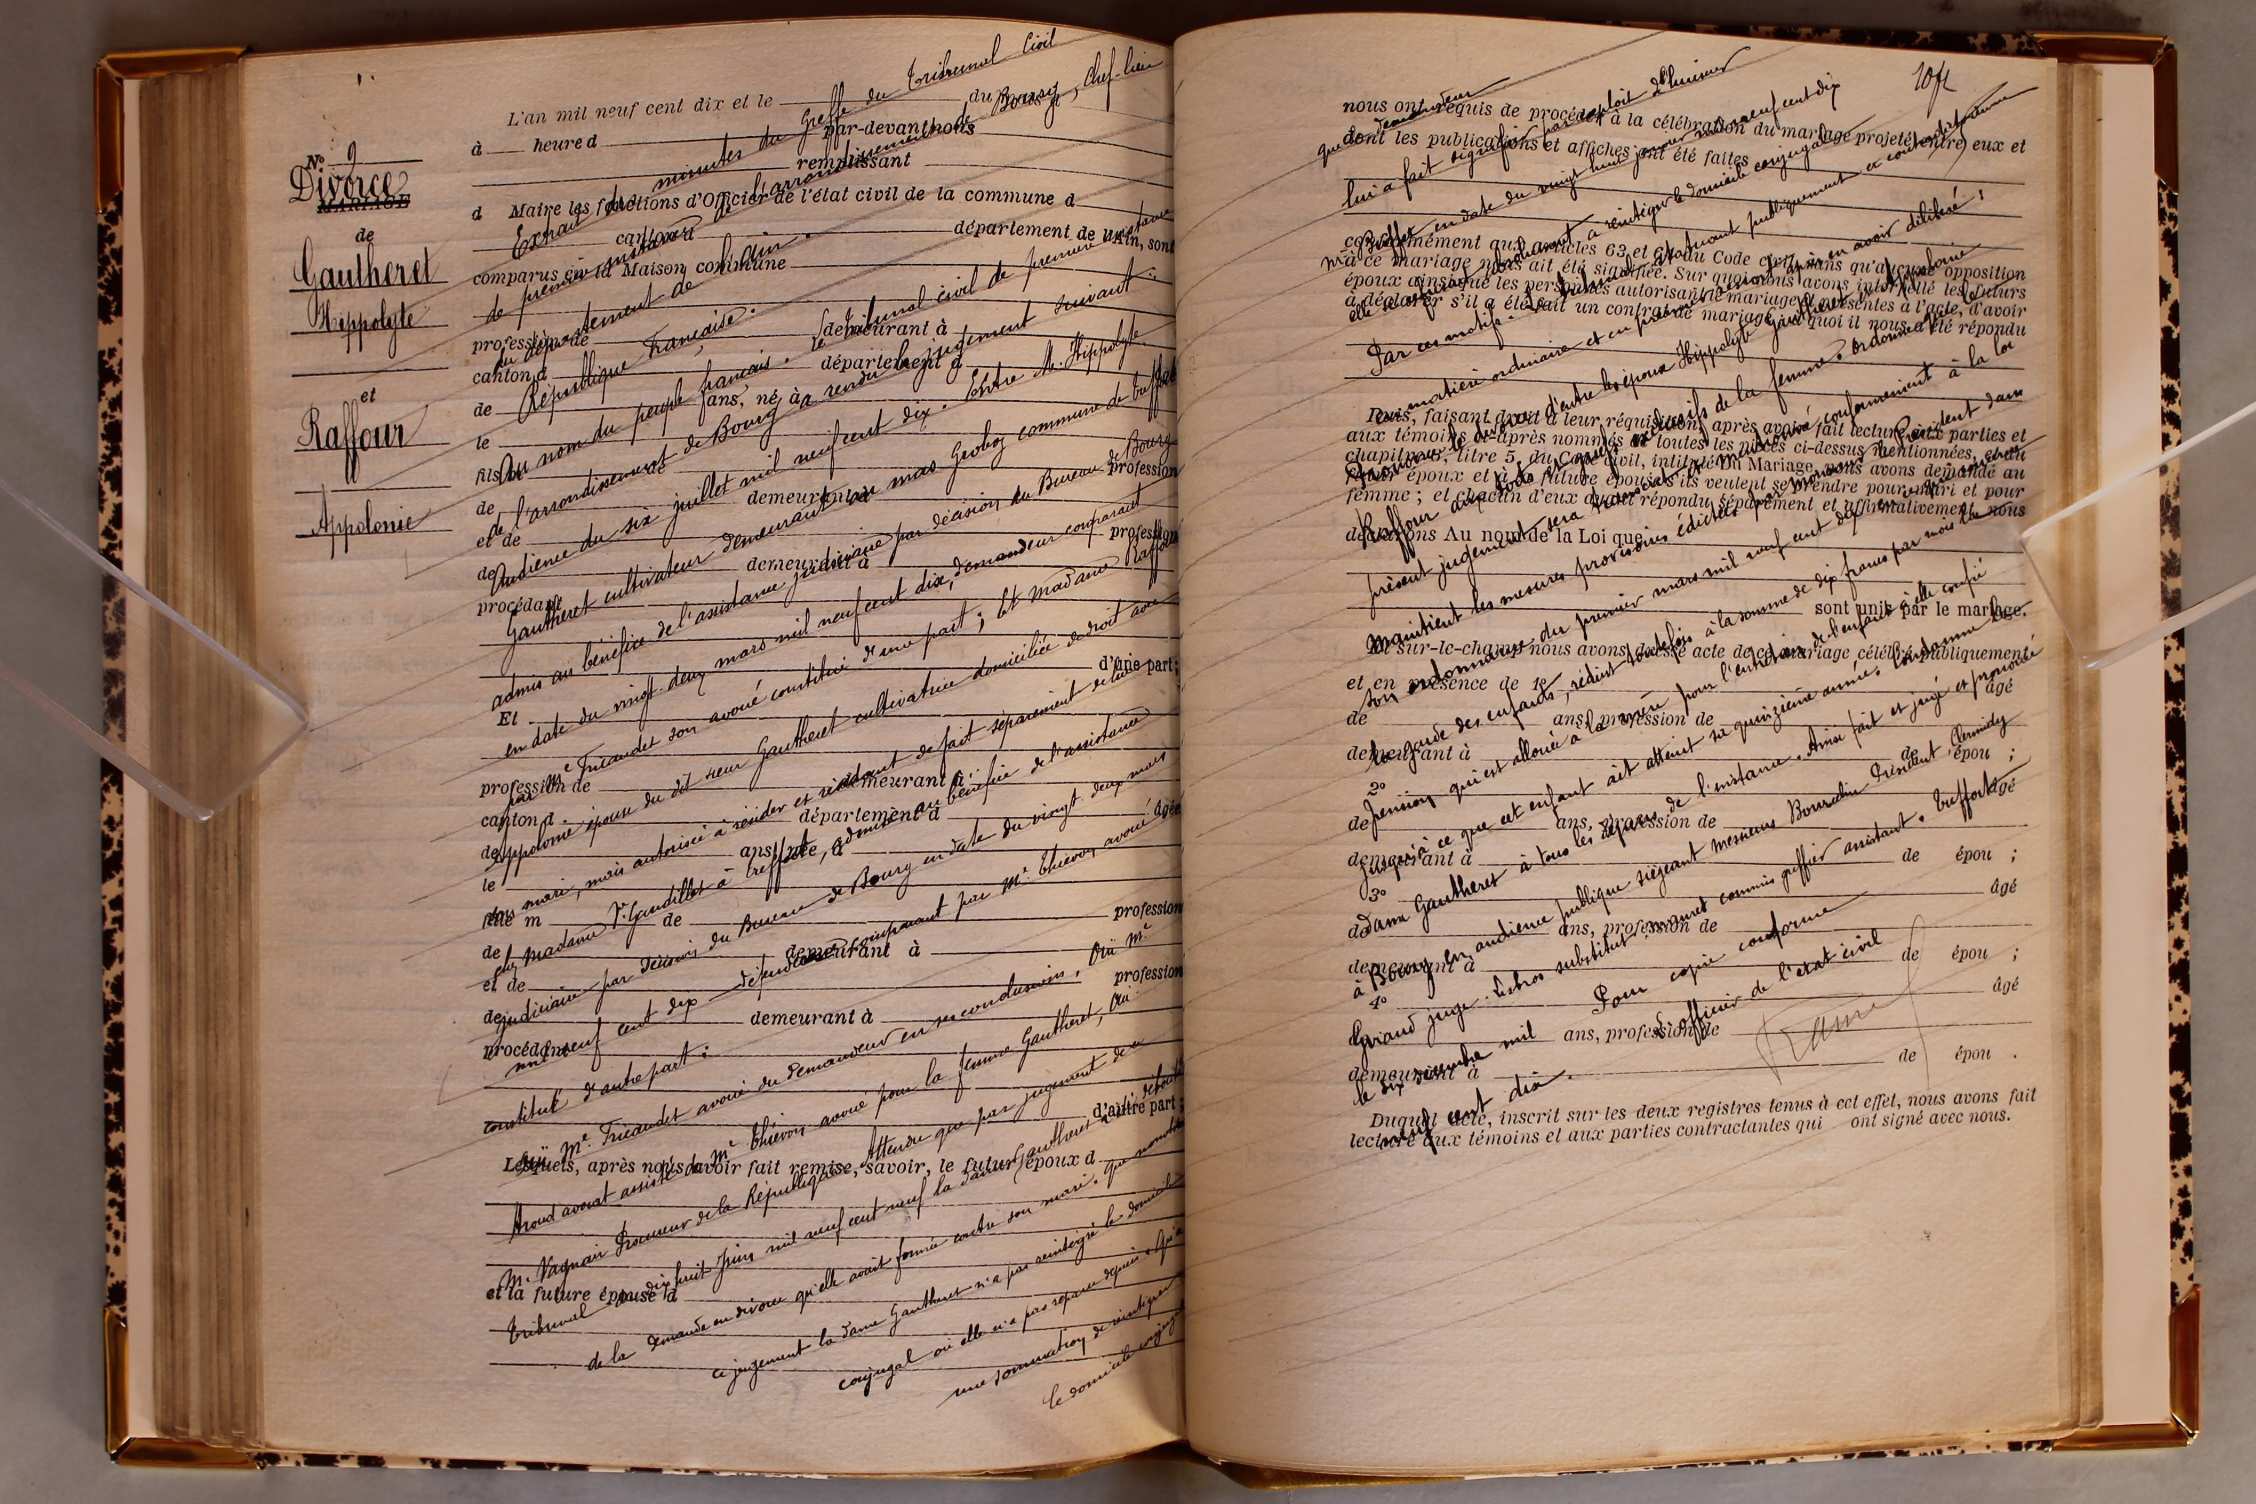 N° 9
Divorce
MARIAGE
de
Gautheret
Hippolyte
et
Raffour
Appolonie
L'an mil neuf cent dix et le du mois d
à heure d par-devant nous
remplissant
d Maire les fonctions d'Officier de l'état civil de la commune d
canton d département de l'Ain, sont
comparus en la Maison commune
profession de demeurant à
canton d département d
de ans, né à
le
fils
de de profession
et de demeurant à
de demeurant à profession
procédant
d'une part;
Et
profession de demeurant à
canton d département d
de ans, née à âgée
le
fille m de profession
de demeurant à
et de profession
de demeurant à
procédant
d'autre part;
Lesquels, après nous avoir fait remise, savoir, le futur époux d
et la future épouse d
Extrait des minutes du Greffe du Tribunal Civil
de première instance de l'arrondissement de Bourg, Chef-lieu
du département de l'ain.
République Française.
Au nom du peuple français. Le Tribunal civil de première instance
de l'arrondissement de Bourg a rendu le jugement suivant:
Audience du six juillet mil neuf cent dix. Entre M. Hippolyte
Gautheret cultivateur demeurant au mas Groboz commune de Treffort
admis au bénéfice de l'assistance judiciaire par décision du Bureau de Bourg
en date du vingt-deux mars mil neuf cent dix, demandeur comparant
par Me Tricaudet son avoué constitué d'une part; Et madame Raffour
Appolonie épouse du dit sieur Gautheret cultivatrice domiciliée de droit avec
son mari, mais autorisée à résider et résidant de fait séparément de lui
chez madame Ve Gaudillet à Treffort, admise au bénéfice de l'assistance
judiciaire par décision du Bureau de Bourg en date du vingt deux mars
mil neuf cent dix défenderesse comparant par Me Thiévon avoué
constitué d'autre part:
Ouï Me Tricaudet avoué du demandeur en ses conclusions, Ouï Me
Aroud avocat assisté de Me Thiévon avoué pour la femme Gautheret, Ouï
M. Vagnair Procureur de la République. Attendu que par jugement de ce
Tribunal du dix huit Juin mil neuf cent neuf la dame Gautheret a été déboutée
de la demande en divorce qu'elle avait formée contre son mari. que nonobstant
ce jugement la dame Gautheret n'a pas réintégré le domicile
conjugal où elle n'a pas reparu depuis. Qu'à
une sommation de réintégrer
le domicile conjugal
nous ont requis de procéder à la célébration du mariage projeté entre eux et
dont les publications et affiches ont été faites
conformément aux articles 63 et 64 du Code civil, sans qu'aucune opposition
à ce mariage nous ait été signifiée. Sur quoi nous avons interpellé les futurs
époux ainsi que les personnes autorisant le mariage, présentes à l'acte, d'avoir
à déclarer s'il a été fait un contrat de mariage, à quoi il nous a été répondu
Puis, faisant droit à leur réquisition, après avoir fait lecture aux parties et
aux témoins ci-après nommés de toutes les pièces ci-dessus mentionnées, et du
chapitre 6, titre 5, du Code civil, intitulé Du Mariage, nous avons demandé au
futur époux et à la future épouse s'ils veulent se prendre pour mari et pour
femme; et chacun d'eux ayant répondu séparément et affirmativement, nous
déclarons Au nom de la Loi que
sont unis par le mariage.
Et sur-le-champ nous avons dressé acte de ce mariage célébré publiquement
et en présence de 1° âgé
de ans, profession de
demeurant à de épou ;
2° âgé
de ans, profession de
demeurant à de épou ;
3° âgé
de ans, profession de
demeurant à de épou ;
4° âgé
de ans, profession de
demeurant à de épou .
Duquel acte, inscrit sur les deux registres tenus à cet effet, nous avons fait
lecture aux témoins et aux parties contractantes qui ont signé avec nous.
que le demandeur
lui a fait signifier par exploit d'huissier
Buffet en date du vingt huit janvier mil neuf cent dix
elle s'est refusée absolument à réintégrer le domicile conjugal
Par ces motifs: Le Tribunal statuant publiquement et contradictoirement
en matière ordinaire et en premier ressort, après en avoir délibéré:
Prononce le divorce d'entre les époux Hippolyte Gautheret et Appolonie
Raffour aux torts et griefs exclusifs de la femme. Ordonne que le
présent jugement sera transcrit et mentionné conformément à la loi
Maintient les mesures provisoires édictées par Monsieur le Président dans
son ordonnance du premier mars mil neuf cent dix en ce qui concerne
la garde des enfants, réduit toutefois à la somme de dix francs par mois la
pension qui est allouée à la mère pour l'entretien de l'enfant à elle confié
jusqu'à ce que cet enfant ait atteint sa quinzième année. Condamne la
dame Gautheret à tous les dépens de l'instance. Ainsi fait et jugé et prononcé
à Bourg en audience publique siégeant messieurs Bourdin Président, Vermidy
Giriaud juge. Lestros substitut. mouret commis greffier assistant. Treffort
le dix décembre mil
neuf cent dix.
Pour copie conforme
L'officier de l'état civil